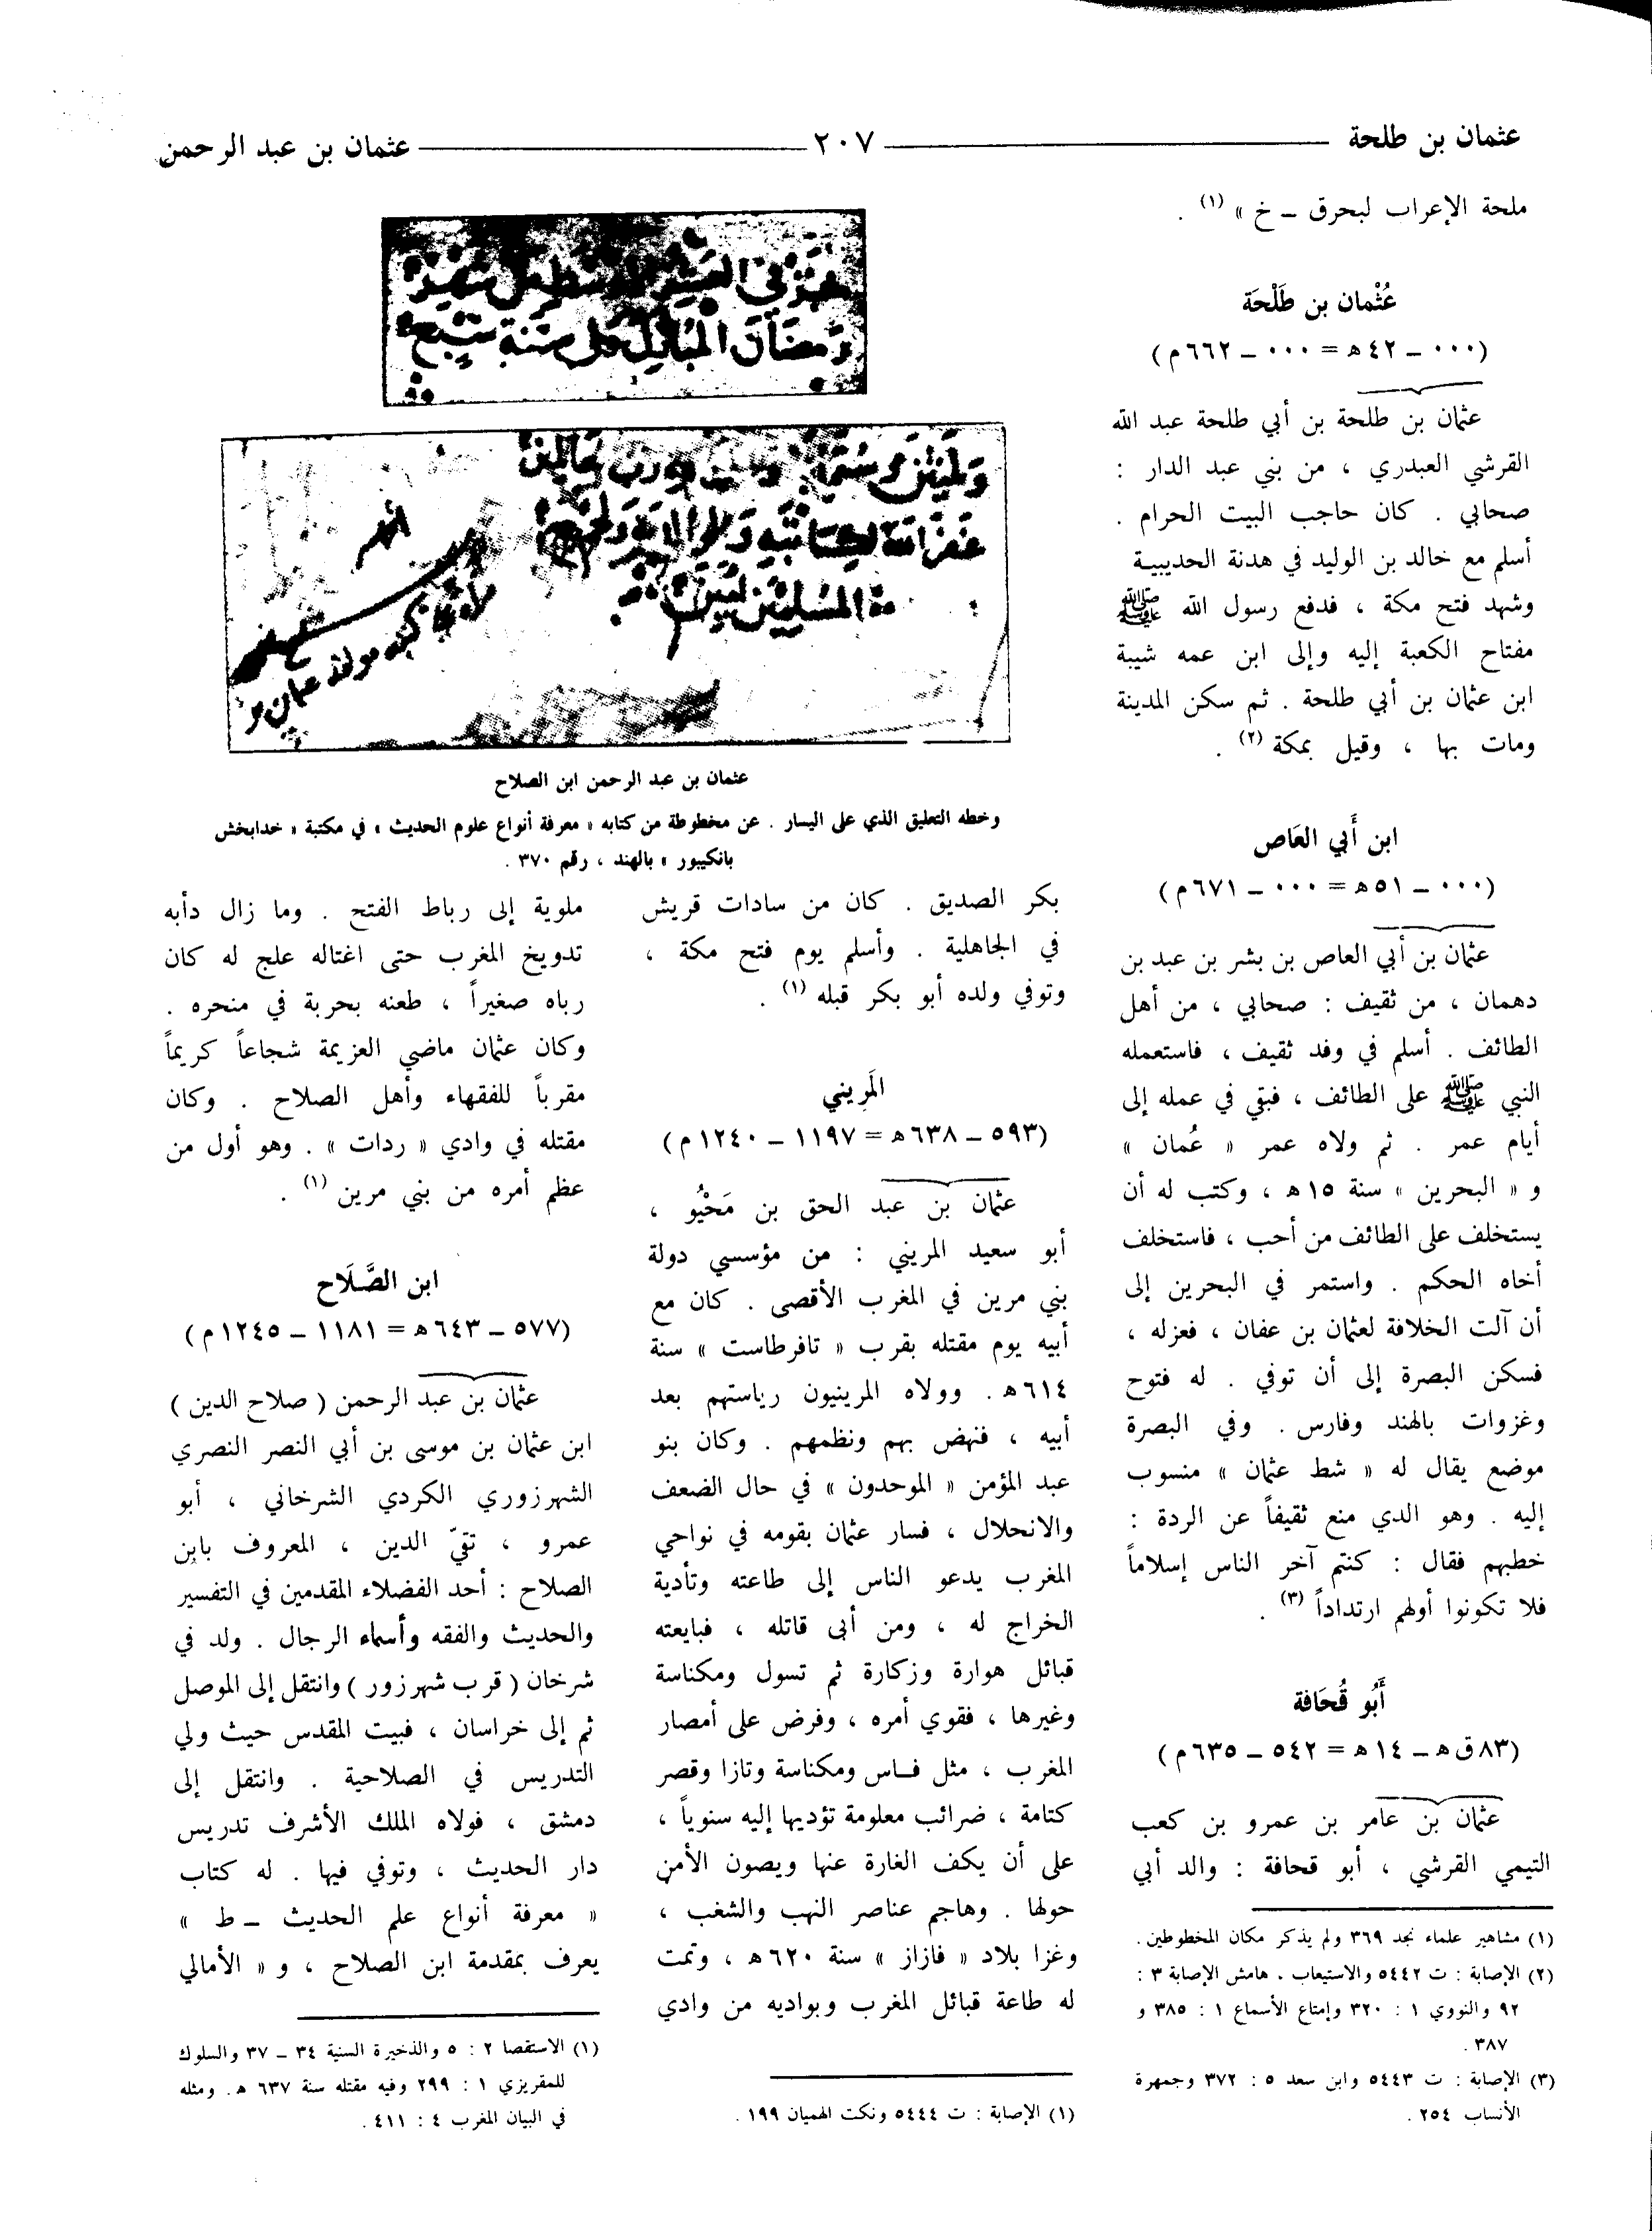 عثمان بن طلحة
٢٠٧
عثمان بن عبد الرحمن
ملحة الإعراب لبحرق ــ خ » (١) .
عُثْمان بن طَلْحَة
(٠٠٠ ــ ٤٢ه = ٠٠٠ ــ ٦٦٢م)
عثمان بن طلحة بن أبي طلحة عبد الله
القرشي العبدري ، من بني عبد الدار :
صحابي . كان حاجب البيت الحرام .
أسلم مع خالد بن الوليد في هدنة الحديبيـة
وشهد فتح مكة ، فدفع رسول الله ﷺ
مفتاح الكعبة إليه وإلى ابن عمه شيبة
ابن عثمان بن أبي طلحة . ثم سكن المدينة
ومات بها ، وقيل بمكة (٢) .
ابن أَبي العَاص
(٠٠٠ ــ ٥١ه = ٠٠٠ ــ ٦٧١م)
عثمان بن أبي العاص بن بشر بن عبد بن
دهمان ، من ثقيف : صحابي ، من أهل
الطائف . أسلم في وفد ثقيف ، فاستعمله
النبي ﷺ على الطائف ، فبقي في عمله إلى
أيام عمر . ثم ولاه عمر « عُمان »
و « البحرين » سنة ١٥ه ، وكتب له أن
يستخلف على الطائف من أحب ، فاستخلف
أخاه الحكم . واستمر في البحرين إلى
أن آلت الخلافة لعثمان بن عفان ، فعزله ،
فسكن البصرة إلى أن توفي . له فتوح
وغزوات بالهند وفارس . وفي البصرة
موضع يقال له « شط عثمان » منسوب
إليه . وهو الدي منع ثقيفاً عن الردة :
خطبهم فقال : كنتم آخر الناس إسلاماً
فلا تكونوا أولهم ارتداداً (٣) .
أَبُو قُحَافة
(٨٣ق ه ــ ١٤ه = ٥٤٢ ــ ٦٣٥م)
عثمان بن عامر بن عمرو بن كعب
التيمي القرشي ، أبو قحافة : والد أبي
(١) مشاهير علماء نجد ٣٦٩ ولم يذكر مكان المخطوطين .
(٢) الإصابة : ت ٥٤٤٢ والاستيعاب . هامش الإصابة ٣ :
٩٢ والنووي ١ : ٣٢٠ وإمتاع الأسماع ١ : ٣٨٥ و
٣٨٧ .
(٣) الإصابة : ت ٥٤٤٣ وابن سعد ٥ : ٣٧٢ وجمهرة
الأنساب ٢٥٤ .
عثمان بن عبد الرحمن ابن الصلاح
وخطه التعليق الذي على اليسار . عن مخطوطة من كتابه « معرفة أنواع علوم الحديث » في مكتبة « خدابخش
بانكيبور » بالهند ، رقم ٣٧٠ .
بكر الصديق . كان من سادات قريش
في الجاهلية . وأسلم يوم فتح مكة ،
وتوفي ولده أبو بكر قبله (١) .
المَرِيني
(٥٩٣ ــ ٦٣٨ه = ١١٩٧ ــ ١٢٤٠م)
عثمان بن عبد الحق بن مَحْيُو ،
أبو سعيد المريني : من مؤسسي دولة
بني مرين في المغرب الأقصى . كان مع
أبيه يوم مقتله بقرب « تافرطاست » سنة
٦١٤ه . وولاه المرينيون رياستهم بعد
أبيه ، فنهض بهم ونظمهم . وكان بنو
عبد المؤمن « الموحدون » في حال الضعف
والانحلال ، فسار عثمان بقومه في نواحي
المغرب يدعو الناس إلى طاعته وتأدية
الخراج له ، ومن أبى قاتله ، فبايعته
قبائل هوارة وزكارة ثم تسول ومكناسة
وغيرها ، فقوي أمره ، وفرض على أمصار
المغرب ، مثل فـاس ومكناسة وتازا وقصر
كتامة ، ضرائب معلومة تؤديها إليه سنوياً ،
على أن يكف الغارة عنها ويصون الأمن
حولها . وهاجم عناصر النهب والشغب ،
وغزا بلاد « فازاز » سنة ٦٢٠ه ، وتمت
له طاعة قبائل المغرب وبواديه من وادي
(١) الإصابة : ت ٥٤٤٤ ونكت الهميان ١٩٩ .
ملوية إلى رباط الفتح . وما زال دأبه
تدويخ المغرب حتى اغتاله علج له كان
رباه صغيراً ، طعنه بحربة في منحره .
وكان عثمان ماضي العزيمة شجاعاً كريماً
مقرباً للفقهاء وأهل الصلاح . وكان
مقتله في وادي « ردات » . وهو أول من
عظم أمره من بني مرين (١) .
ابن الصَّلَاح
(٥٧٧ ــ ٦٤٣ه = ١١٨١ ــ ١٢٤٥م)
عثمان بن عبد الرحمن ( صلاح الدين )
ابن عثمان بن موسى بن أبي النصر النصري
الشهرزوري الكردي الشرخاني ، أبو
عمرو ، تقيّ الدين ، المعروف بابن
الصلاح : أحد الفضلاء المقدمين في التفسير
والحديث والفقه وأسماء الرجال . ولد في
شرخان ( قرب شهرزور ) وانتقل إلى الموصل
ثم إلى خراسان ، فبيت المقدس حيث ولي
التدريس في الصلاحية . وانتقل إلى
دمشق ، فولاه الملك الأشرف تدريس
دار الحديث ، وتوفي فيها . له كتاب
« معرفة أنواع علم الحديث ــ ط »
يعرف بمقدمة ابن الصلاح ، و « الأمالي
(١) الاستقصا ٢ : ٥ والذخيرة السنية ٣٤ ــ ٣٧ والسلوك
للمقريزي ١ : ٢٩٩ وفيه مقتله سنة ٦٣٧ ه . ومثله
في البيان المغرب ٤ : ٤١١ .